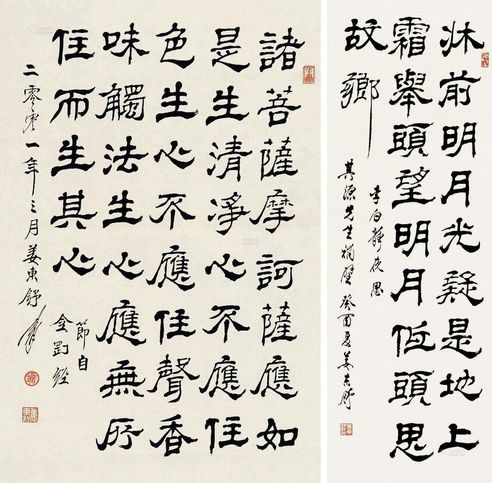 牀前明月光疑是地上
霜舉頭望明月低頭思
故鄉
李白靜夜思
其源先生 癸酉夏姜東舒
諸菩薩摩訶薩應如
是生清淨心不應住
色生心不應住聲香
味觸法生心應無所
住而生其心
節自
金剛經
二零零一年三月姜東舒